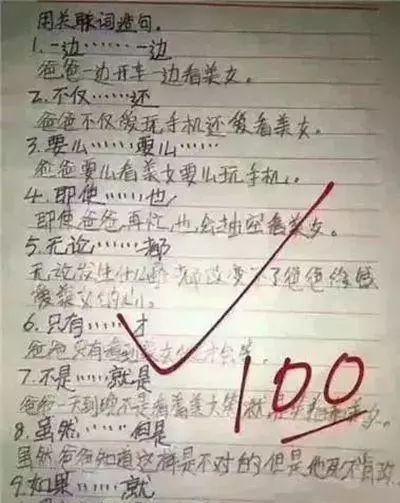 用关联词造句.
1.一边……一边
爸爸一边开车一边看美女。
2.不仅……还
爸爸不仅爱玩手机还爱看美女。
3.要么……要么……
爸爸要么看美女要么玩手机。
4.即使……也
即使爸爸再忙,也会抽空看美女。
5.无论……都
无论发生什么 都改变不了爸爸
6.只有……才
爸爸只有看到美女 才会笑。
7.不是……就是
爸爸一天到晚不是看着美女笑就是
8.虽然……但是
虽然爸爸知道这样是不对的但是他
9.如果……就
100